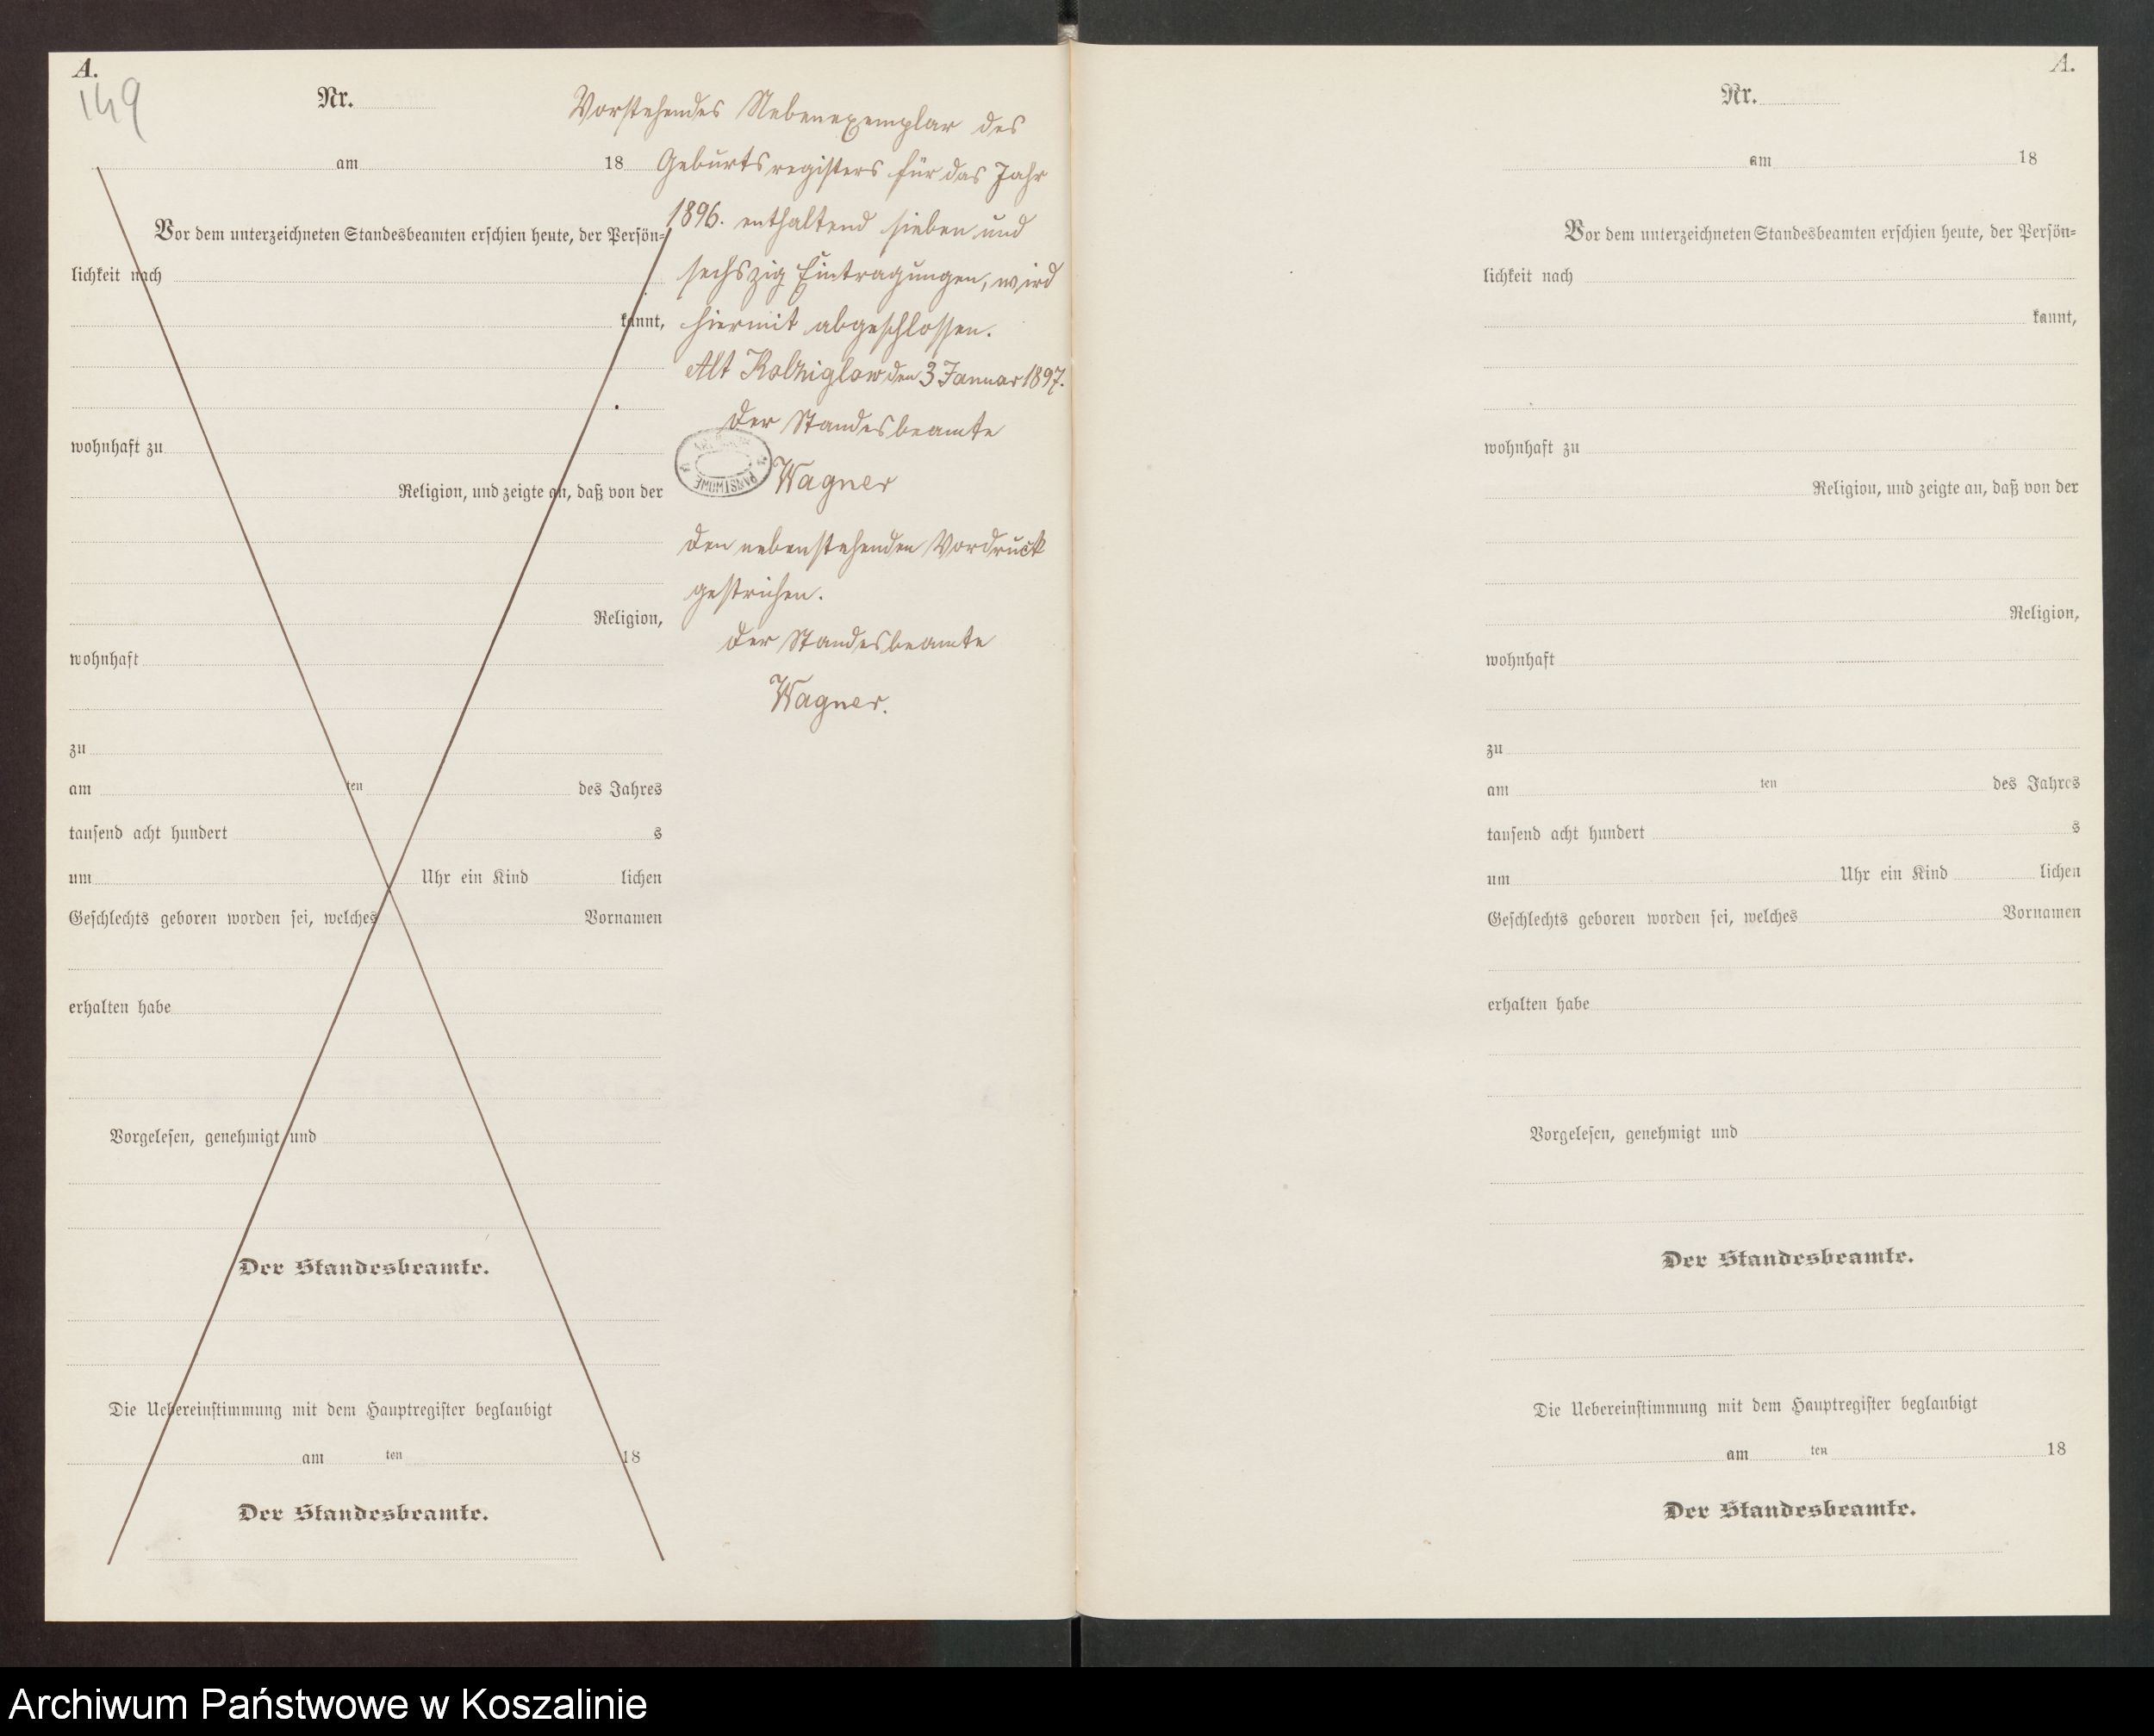 A.
149
Nr.
Vorstehendes Nebenexemplar des
am 18
Geburtsregisters für das Jahr
1896. enthaltend sieben und
sechszig Eintragungen, wird
hiermit abgeschlossen.
Alt Kolziglow den 3 Januar 1897.
Der Standesbeamte
Wagner
PAŃSTWOWE
Den nebenstehenden Vordruck
gestrichen.
Der Standesbeamte
Wagner.
Vor dem unterzeichneten Standesbeamten erschien heute, der Persön-
lichkeit nach
kannt,
wohnhaft zu
Religion, und zeigte an, daß von der
Religion,
wohnhaft
zu
am ten des Jahres
tausend acht hundert s
um Uhr ein Kind lichen
Geschlechts geboren worden sei, welches Vornamen
erhalten habe
Vorgelesen, genehmigt und
Der Standesbeamte.
Die Uebereinstimmung mit dem Hauptregister beglaubigt
am ten 18
Der Standesbeamte.
A.
Nr.
am 18
Vor dem unterzeichneten Standesbeamten erschien heute, der Persön-
lichkeit nach
kannt,
wohnhaft zu
Religion, und zeigte an, daß von der
Religion,
wohnhaft
zu
am ten des Jahres
tausend acht hundert s
um Uhr ein Kind lichen
Geschlechts geboren worden sei, welches Vornamen
erhalten habe
Vorgelesen, genehmigt und
Der Standesbeamte.
Die Uebereinstimmung mit dem Hauptregister beglaubigt
am ten 18
Der Standesbeamte.
Archiwum Państwowe w Koszalinie